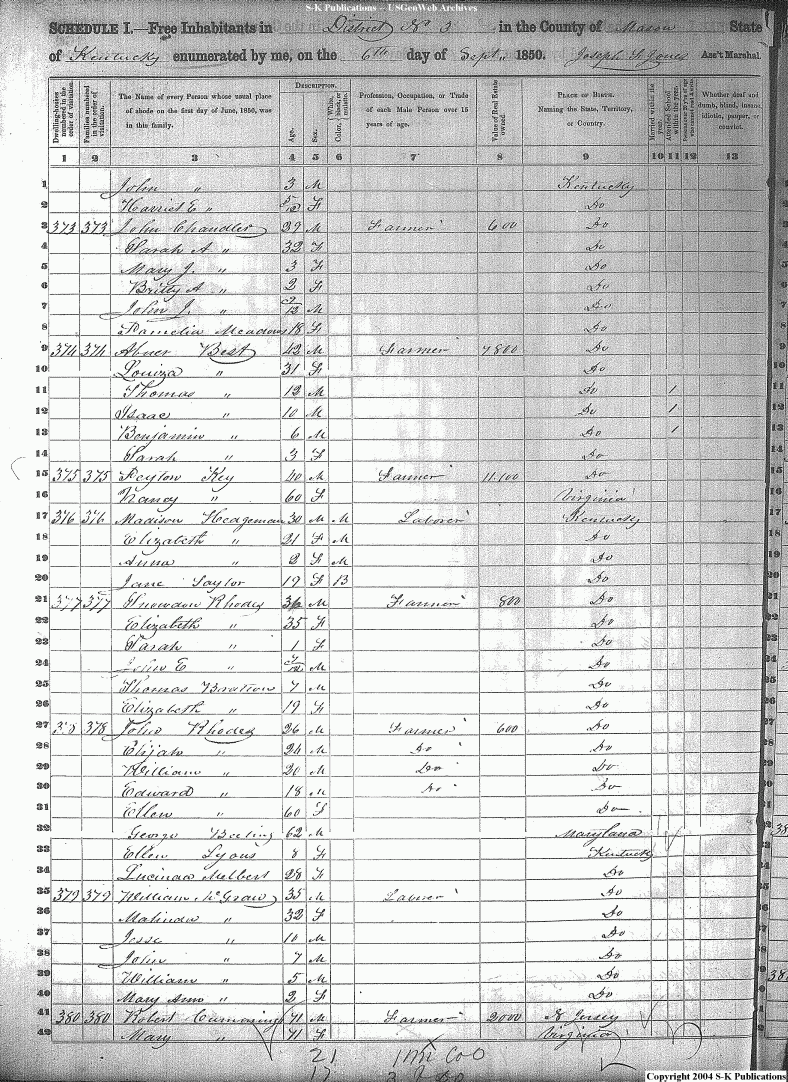 S-K Publications -- USGenWeb Archives
SCHEDULE I.—Free Inhabitants in District No 3 in the County of Mason State
of Kentucky enumerated by me, on the 6th day of Sept., 1850. Joseph F. Jones Ass't Marshal.
Dwelling-houses numbered in the order of visitation.
Families numbered in the order of visitation.
The Name of every Person whose usual place of abode on the first day of June, 1850, was in this family.
DESCRIPTION.
Age.
Sex.
Color, White, black, or mulatto.
Profession, Occupation, or Trade of each Male Person over 15 years of age.
Value of Real Estate owned.
PLACE OF BIRTH. Naming the State, Territory, or Country.
Married within the year.
Attended School within the year.
Whether deaf and dumb, blind, insane, idiotic, pauper, or convict.
1 2 3 4 5 6 7 8 9 10 11 12 13
1 John " 3 M Kentucky 1
2 Harriet E " F Do 2
3 373 373 John Chandler 29 M Farmer 600 Do 3
4 Sarah A " 32 F Do 4
5 Mary J. " 3 F Do 5
6 Britty A " 2 F Do 6
7 John J. " M Do 7
8 Pamelia Meadows 18 F Do 8
9 374 374 Abner Best 42 M Farmer 7800 Do 9
10 Louiza " 31 F Do 10
11 Thomas " 12 M Do 1 11
12 Isaac " 10 M Do 1 12
13 Benjamin " 6 M Do 1 13
14 Sarah " 3 F Do 14
15 375 375 Peyton Key 40 M Farmer 11.100 Do 15
16 Nancy " 60 F Virginia 16
17 376 376 Madison Hedgeman 30 M M Laborer Kentucky 17
18 Elizabeth " 21 F M Do 18
19 Anna " 2 F M Do 19
20 Jane Taylor 19 F B Do 20
21 377 377 Snowdon Rhodes 36 M Farmer 800 Do 21
22 Elizabeth " 35 F Do 22
23 Sarah " 1 F Do 23
24 John E " M Do 24
25 Thomas Bratton 7 M Do 25
26 Elizabeth " 19 F Do 26
27 378 378 John Rhodes 26 M Farmer 600 Do 27
28 Elijah " 24 M Do Do 28
29 William " 20 M Do Do 29
30 Edward " 18 M Do Do 30
31 Ellen " 60 F Do 31
32 George 62 M Maryland 32
33 Ellen Lyons 8 F Kentucky 33
34 28 F Do 34
35 379 379 William McGraw 35 M Laborer Do 35
36 Malinda " 32 F Do 36
37 Jesse " 10 M Do 37
38 John " 7 M Do 38
39 William " 5 M Do 39
40 Mary Ann " 2 F Do 40
41 380 380 Robert Cummings 71 M Farmer 2000 N Jersey 41
42 Mary " 71 F Virginia 42
21
17
Copyright 2004 S-K Publications